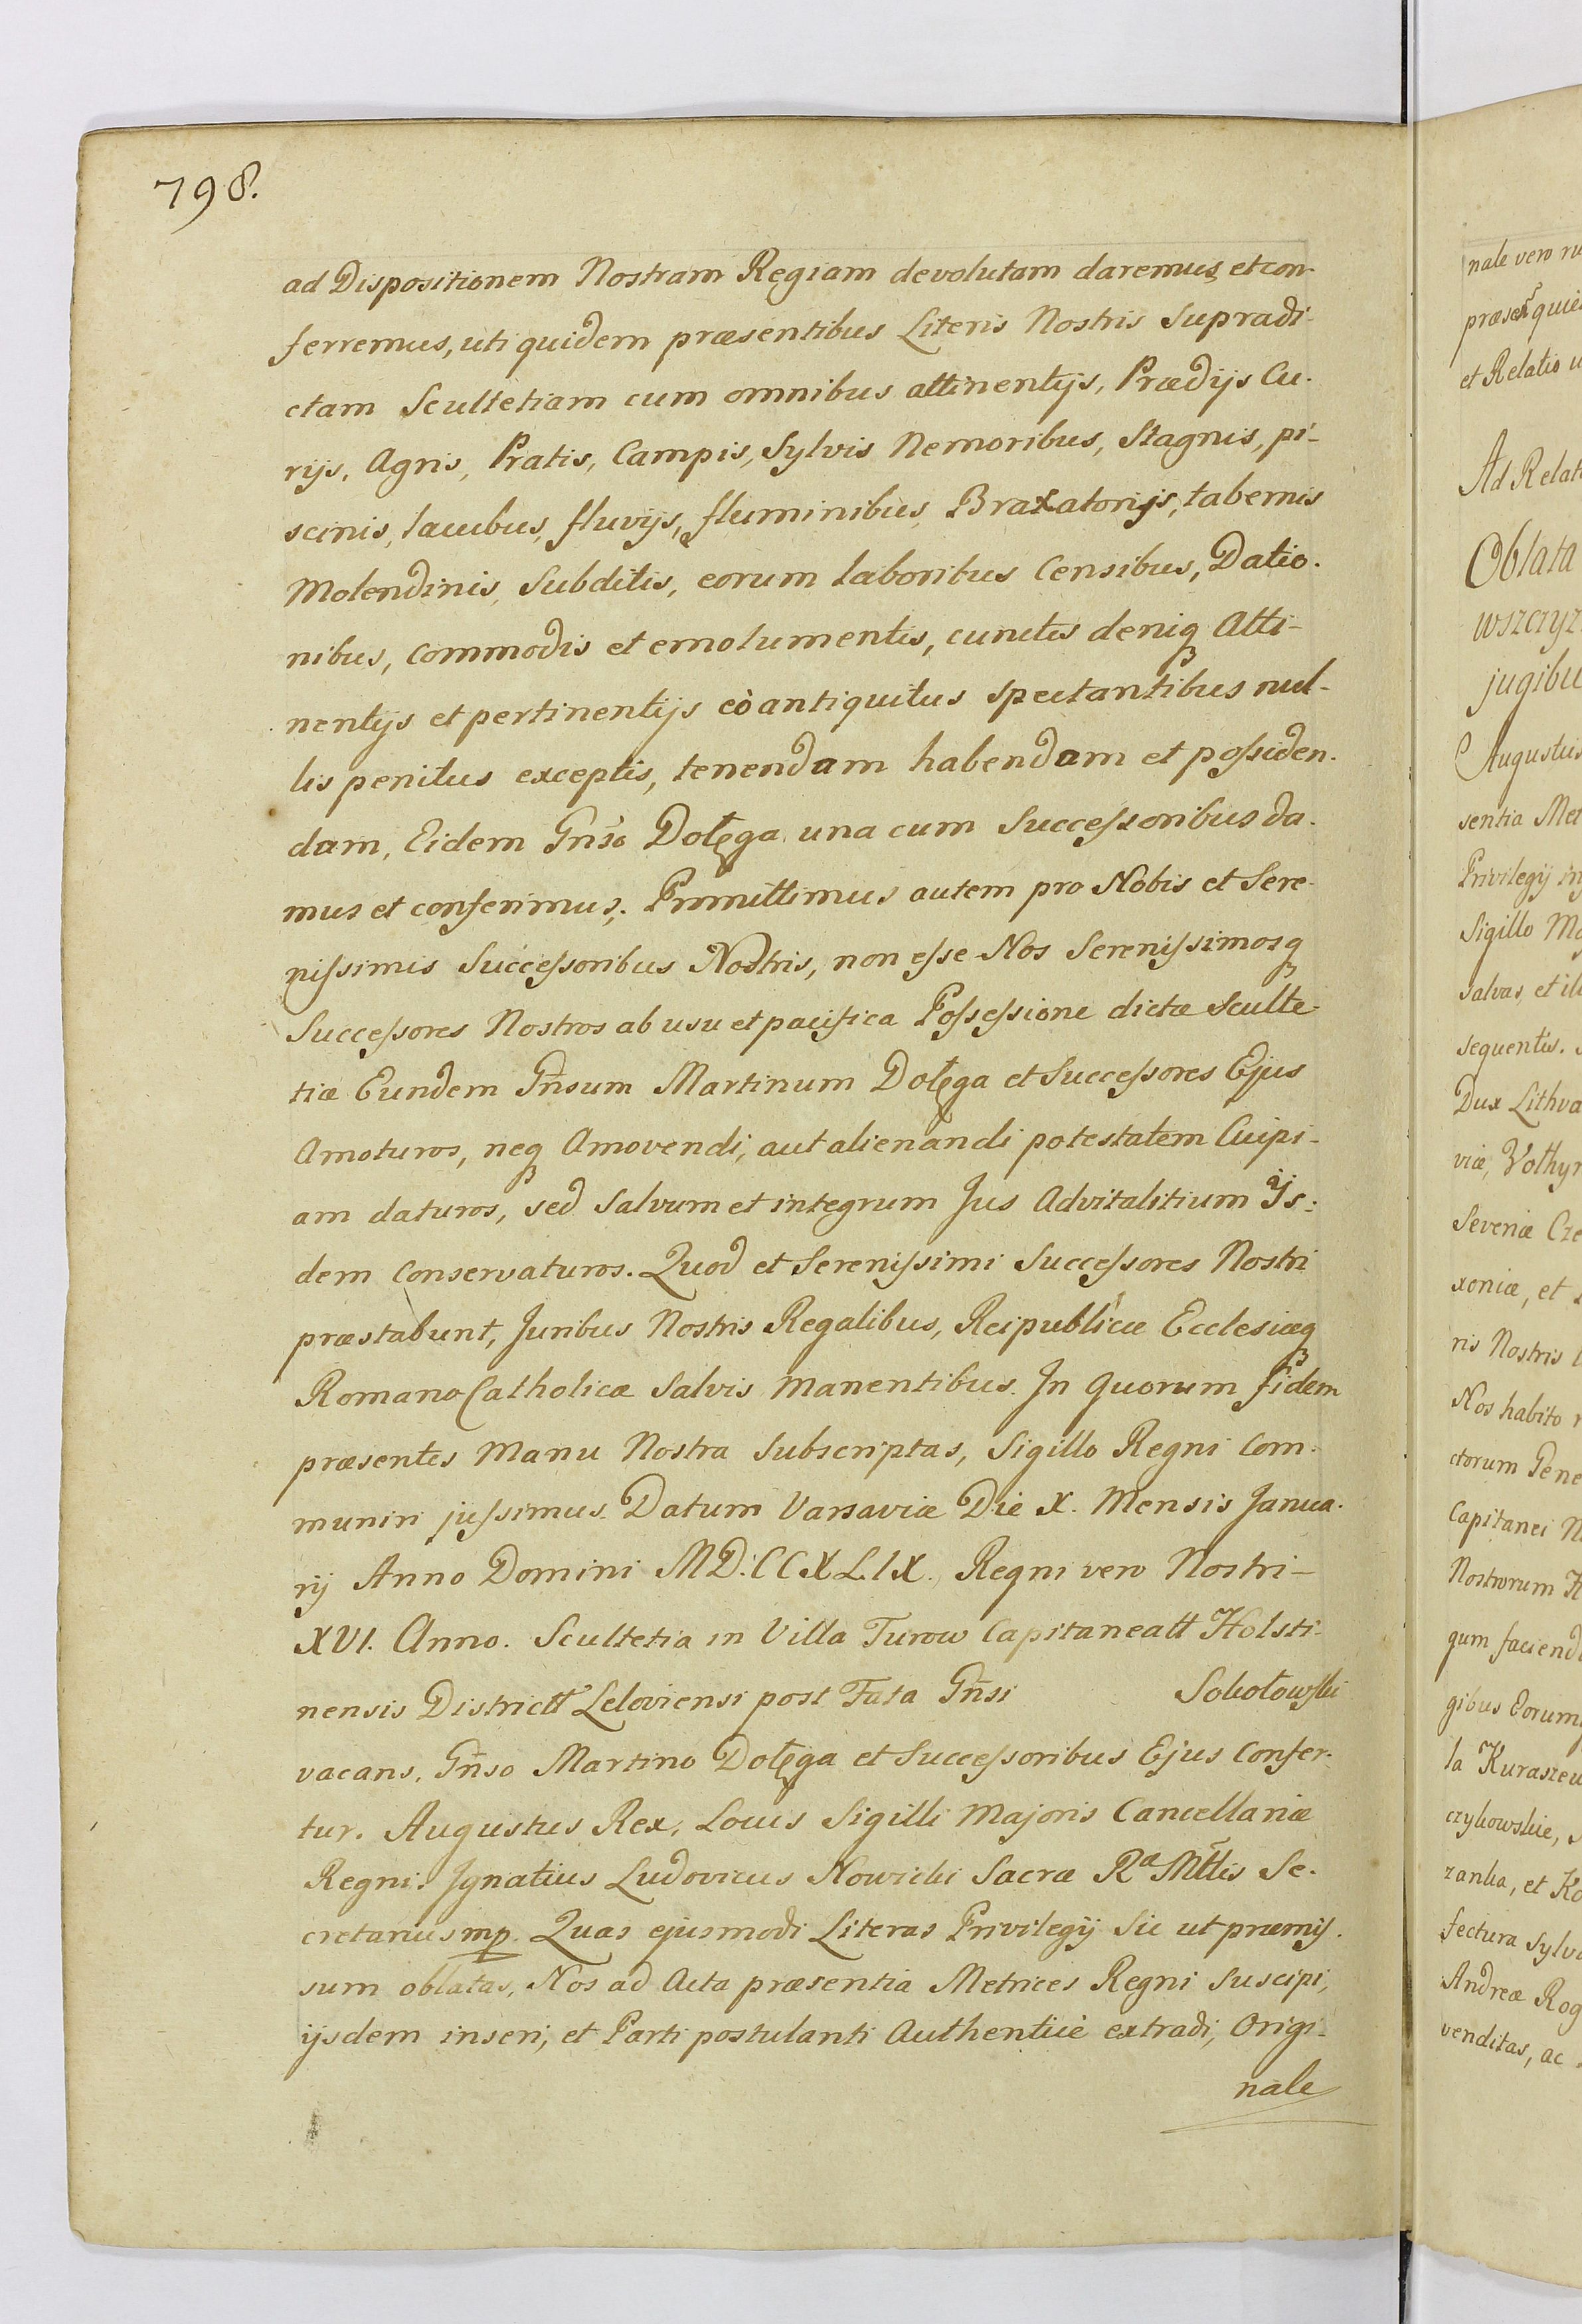 798.
ad Dispositionem Nostram Regiam devolutam daremus, et con-
ferremus, uti quidem præsentibus Literis Nostris Supradi-
ctam Scultetiam cum omnibus attinentijs, Prædijs Cu-
rijs, Agris, Pratis, Campis, Sylvis Nemoribus, Stagnis, pi-
scinis, lacubus, fluvijs, fluminibus, Braxatorijs, tabernis
Molendinis, Subditis, eorum laboribus Censibus, Datio-
nibus, Commodis et emolumentis, cunctis deniq Atti-
nentijs et pertinentijs eò antiquitus Spectantibus nul-
lis penitus exceptis, tenendam habendam et possiden-
dam, Eidem Gnso Dołęga una cum Successoribus da-
mus et conferimus. Promittimus autem pro Nobis et Sere-
nissimis Successoribus Nostris, non esse Nos Serenissimosq
Successores Nostros ab usu et pacifica Possessione dictæ Sculte-
tiæ Eundem Gnsum Martinum Dołęga et Successores Ejus
Amoturos, neq Amovendi, aut alienandi potestatem Cuipi-
am daturos, sed Salvum et integrum Jus Advitalitium Ijs-
dem Conservaturos. Quod et Serenissimi Successores Nostri
præstabunt, Juribus Nostris Regalibus, Reipublicæ Ecclesiæq
Romano Catholicæ Salvis Manentibus. In Quorum fidem
præsentes Manu Nostra Subscriptas, Sigillo Regni Com-
muniri jussimus. Datum Varsaviæ Die X. Mensis Janua-
rij Anno Domini MD.CCXLIX. Regni vero Nostri-
XVI. Anno. Scultetia in Villa Turow Capitaneatt Holsti-
nensis Districtt Leloviensi post Fata Gnsi Sokołowski
vacans, Gnso Martino Dołęga et Successoribus Ejus Confer-
tur. Augustus Rex. Locus Sigilli Majoris Cancellariæ
Regni. Ignatius Ludovicus Nowicki Sacræ Ra Mttis Se-
cretarius mp. Quas ejusmodi Literas Privilegij Sic ut præmis-
sum oblatas, Nos ad Acta præsentia Metrices Regni Suscipi,
ijsdem inseri, et Parti postulanti Authenticè extradi, Origi-
nale
nale vero
quie
et Relatio
Ad Relat
Oblata
wszczyz
jugibu
Augustus
sentia Met
Privilegij
Sigillo
salvas, et
sequentis.
Dux Lithva
viæ, Volhyn
Severiæ Cze
xoniæ, et
ris Nostris
Nos habito
ctorum Gene
Capitanei
Nostrorum
gum faciend
gibus Eorum
la Kuraszew
czykowskie,
zanka, et Ko
fectura Sylv
Andreæ Rog
venditas, ac